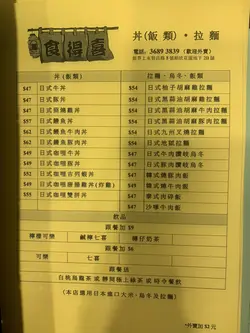 食得喜
丼(飯類)・拉麵
電話: 3689 3839 (歡迎外賣)
丼 (飯類)
拉麵、烏冬、飯類
$47 日式牛丼
$54 日式柚子胡麻雞拉麵
$47 日式豚丼
$54 日式黑蒜油胡麻雞拉麵
$47 日式
$54 日式黑蒜油胡麻地拉麵
$57 日式鰻魚丼
$54 日式黑蒜油胡麻豚肉拉麵
$62 日式鰻魚牛肉丼
$54 日式九州叉燒拉麵
$62 日式鰻魚豚肉丼
$54 日式豚肉地獄拉麵
$52 日式咖喱牛丼
$47 日式牛肉讚岐烏冬
$52 日式咖喱豚丼
$47 日式豚肉讚岐烏冬
$52 日式咖喱雞丼
$47 韓式燒豚肉飯
$52 日式咖喱吉列蝦丼
$49 韓式燒牛肉飯
$52 日式咖喱唐揚雞丼
$47 泰式豬肉碎飯
$52 日式咖喱雙拼丼
$47 沙嗲牛肉飯
飲品
跟餐加 $9
檸檬可樂 鹹檸七喜 檸仔奶茶
跟餐加 $6
可樂 七喜
跟餐送
白桃烏龍茶 或 靜岡極上綠茶 或 特令餐飲
(本店選用日本進口大米、烏冬及拉麵)
*外賣加 $2 元